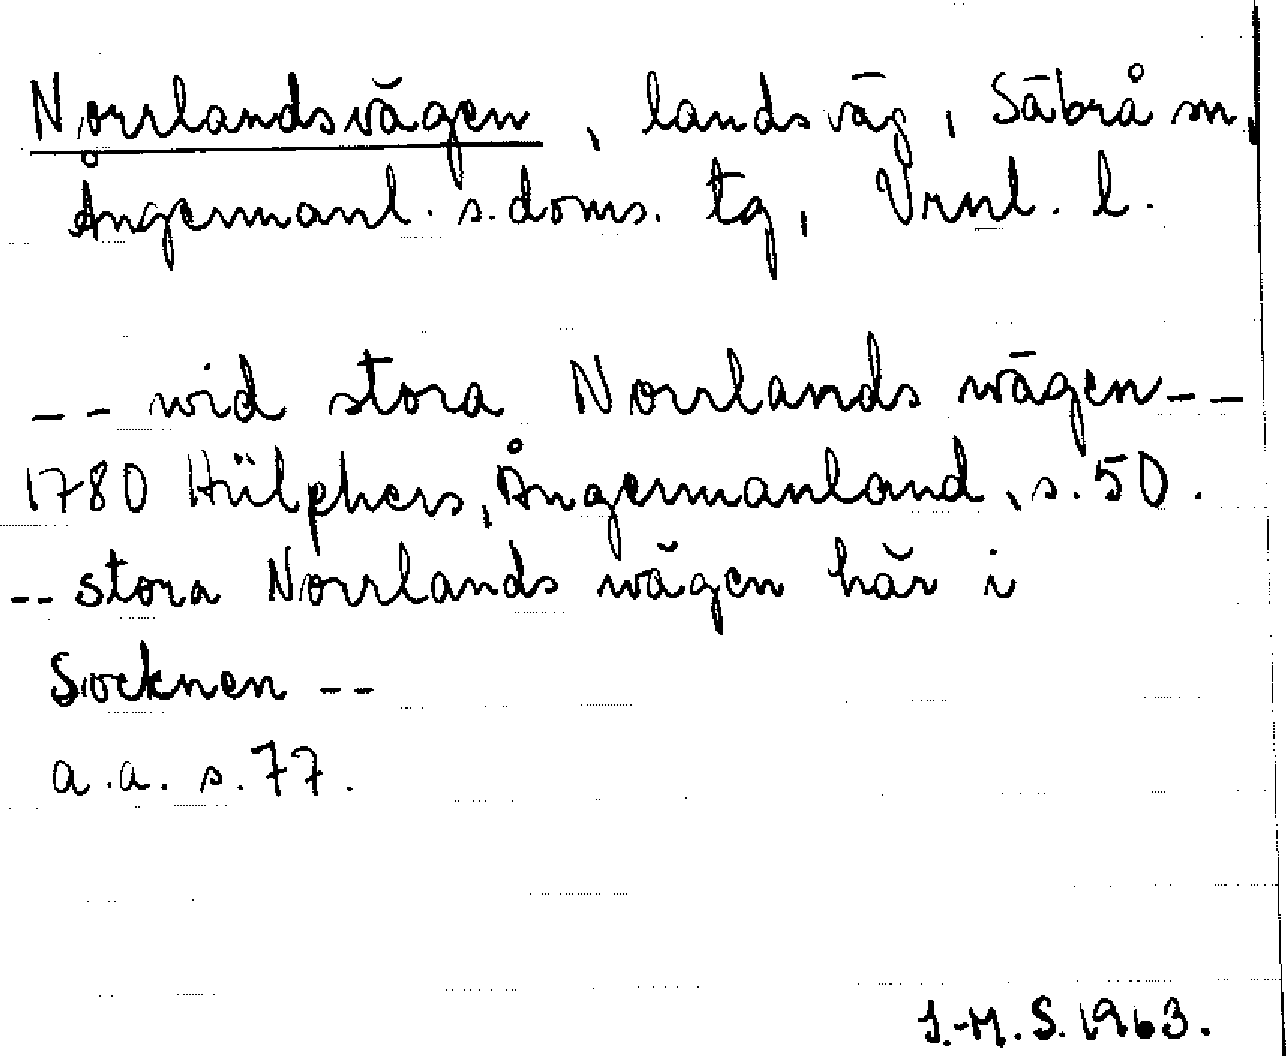 Norrlandsvägen, landsväg, Säbrå sn,
Ångermanl. s. doms. tg, Vrnl. l.
-- wid stora Norrlands wägen --
1780 Hülphers, Ångermanland, s. 50.
-- stora Norrlands wägen här i
Socknen --
a.a. s. 77.
I.-M. S. 1963.